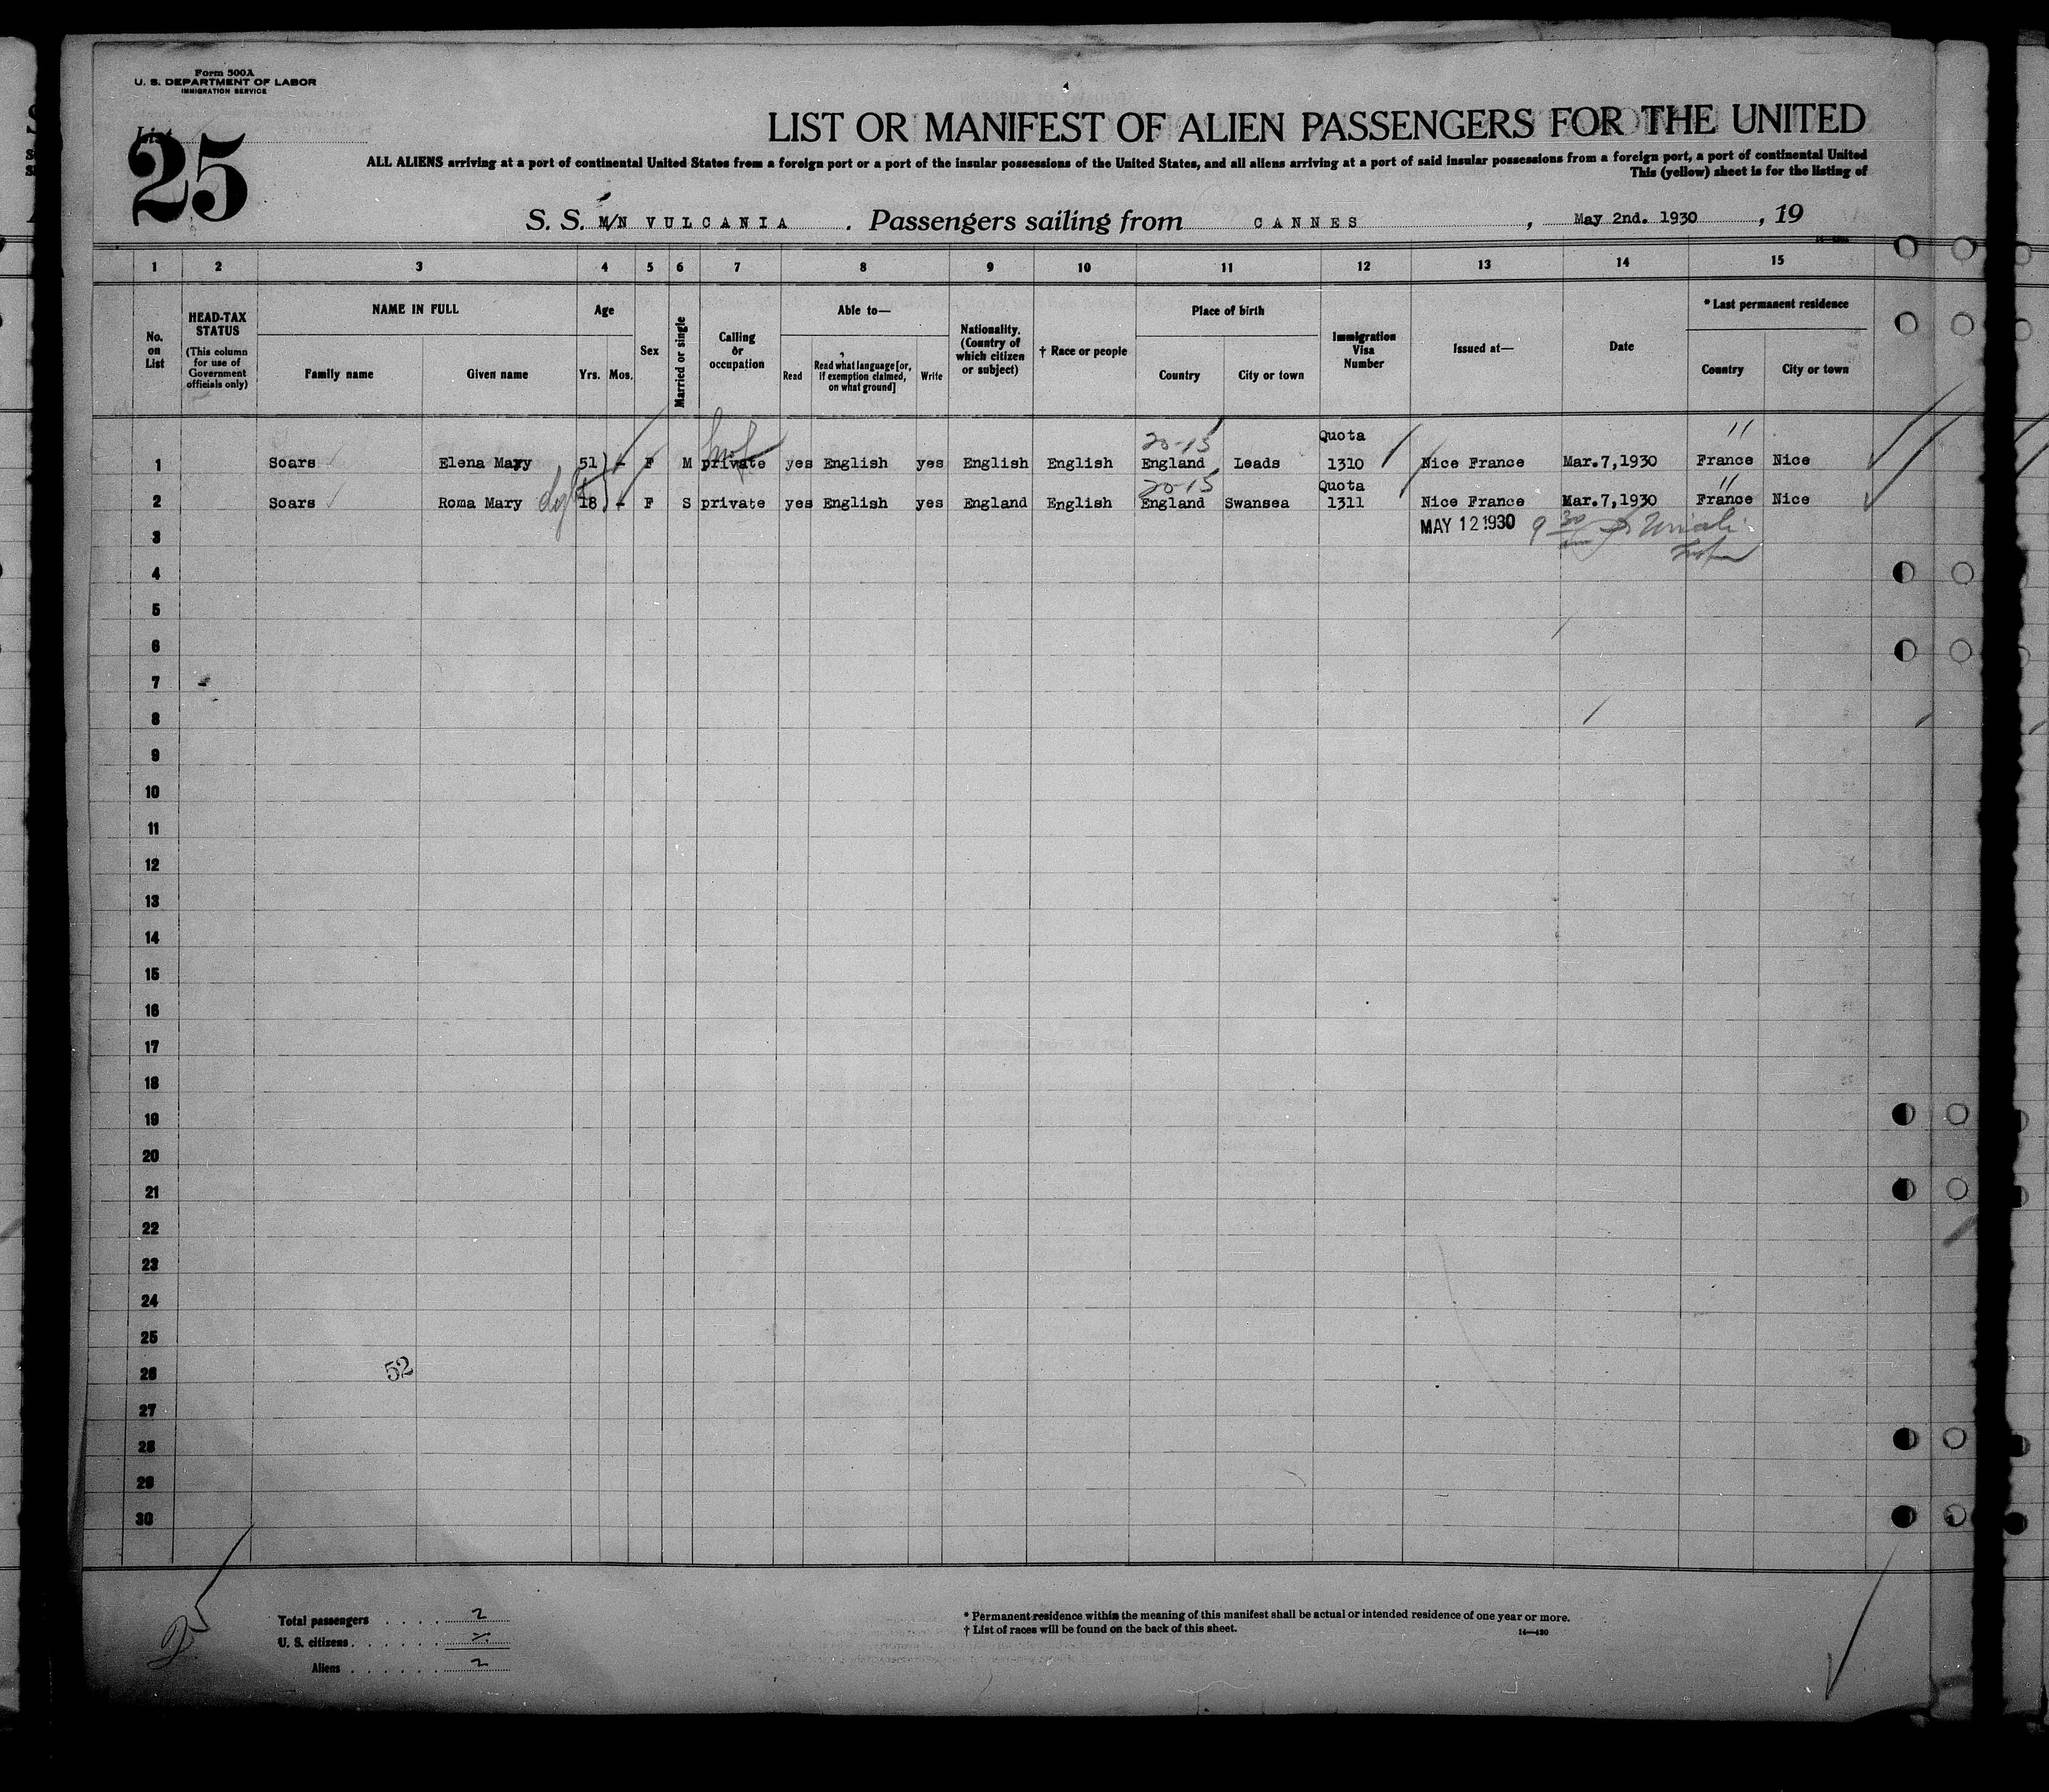 Form 500A
U. S. DEPARTMENT OF LABOR
IMMIGRATION SERVICE
List
25
LIST OR MANIFEST OF ALIEN PASSENGERS FOR THE UNITED
ALL ALIENS arriving at a port of continental United States from a foreign port or a port of the insular possessions of the United States, and all aliens arriving at a port of said insular possessions from a foreign port, a port of continental United
This (yellow) sheet is for the listing of
S. S. M/N VULCANIA . Passengers sailing from CANNES , May 2nd. 1930 , 19
1 2 3 4 5 6 7 8 9 10 11 12 13 14 15
No. on List
HEAD-TAX STATUS
(This column for use of Government officials only)
NAME IN FULL
Family name Given name
Age
Yrs. Mos.
Sex
Married or single
Calling or occupation
Able to—
Read Read what language [or, if exemption claimed, on what ground] Write
Nationality. (Country of which citizen or subject)
† Race or people
Place of birth
Country City or town
Immigration Visa Number
Issued at—
Date
* Last permanent residence
Country City or town
20-15 Quota "
1 Soars Elena Mary 51 - F M private yes English yes English English England Leads 1310 Nice France Mar.7,1930 France Nice
20-15 Quota "
2 Soars Roma Mary 18 - F S private yes English yes England English England Swansea 1311 Nice France Mar.7,1930 France Nice
MAY 12 1930 9 30
3
4
5
6
7
8
9
10
11
12
13
14
15
16
17
18
19
20
21
22
23
24
25
26
52
27
28
29
30
25
Total passengers . . . . 2
U. S. citizens . . . . . .
Aliens . . . . . . 2
* Permanent residence within the meaning of this manifest shall be actual or intended residence of one year or more.
† List of races will be found on the back of this sheet.
14—430